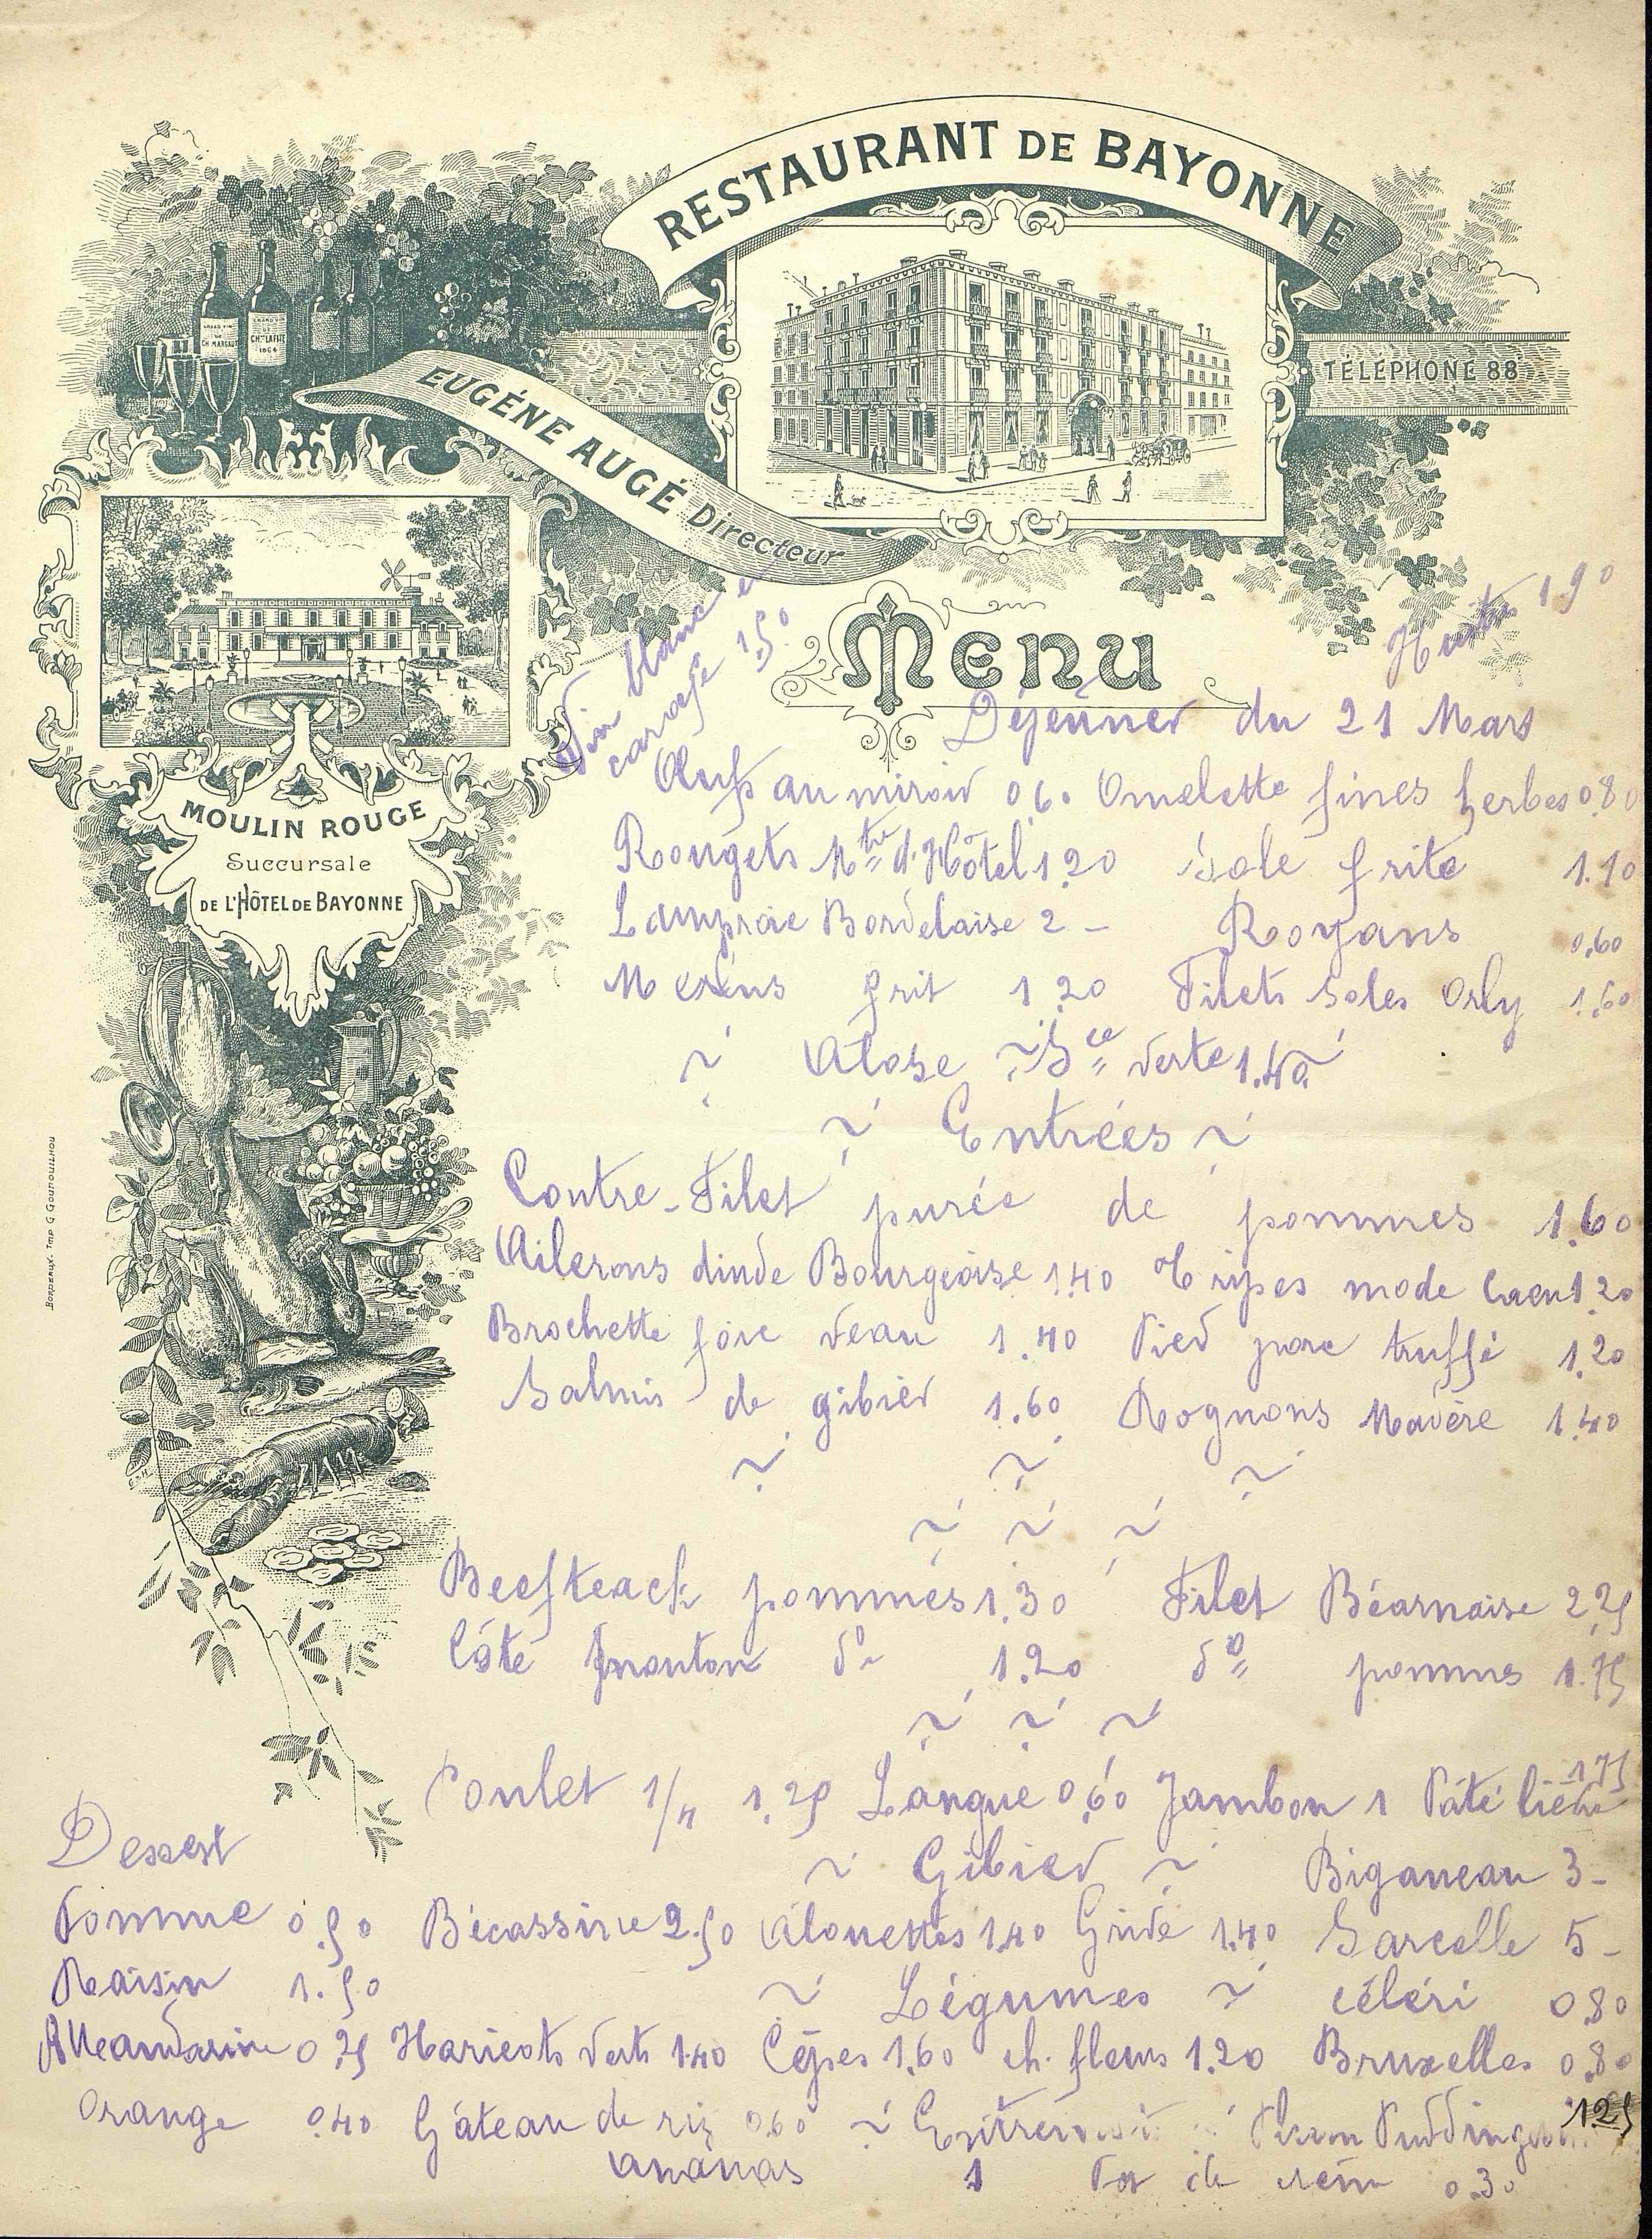 RESTAURANT DE BAYONNE
GRAND VIN
CH. MARGAUX
CH. LAFITE
1864
TÉLÉPHONE 88
EUGÉNE AUGÉ Directeur
Menu
Huitres 1.90
Vin blanc en
carafe 1.50
Déjeuner du 21 Mars
MOULIN ROUGE
Succursale
DE L'HÔTEL DE BAYONNE
Œufs au miroir 0.60 Omelette fines herbes 0.80
Rougets Mtre d'Hôtel 1.20 Sole frite 1.10
Lamproie Bordelaise 2 - Royans 0.60
Merlus frit 1.20 Filets Soles Orly 1.60
~ Alose ~ Sce verte 1.40 ~
~ Entrées ~
Contre-Filet purée de pommes 1.60
Ailerons dinde Bourgeoise 1.40 Tripes mode Caen 1.20
Brochette foie veau 1.40 Pied porc truffé 1.20
Salmis de gibier 1.60 Rognons Madère 1.40
Beefteack pommes 1.30 Filet Béarnaise 2.25
Côte mouton do 1.20 do pommes 1.75
Poulet 1/4 1.25 Langue 0.60 Jambon 1 Pâté lièvre 1.75
Dessert
~ Gibier ~ Biganeau 3 -
Pomme 0.50 Bécassine 2.50 Alouettes 1.40 Grive 1.40 Sarcelle 5 -
Raisin 1.50
~ Légumes ~ céleri 0.80
Mandarine 0.25 Haricots verts 1.40 Cêpes 1.60 ch. fleurs 1.20 Bruxelles 0.80
Orange 0.40 Gâteau de riz 0.60 ~ Entremets Plum Pudding 1.25
Ananas 1 Pot de crème 0.30
BORDEAUX. IMP G GOUNOUILHOU